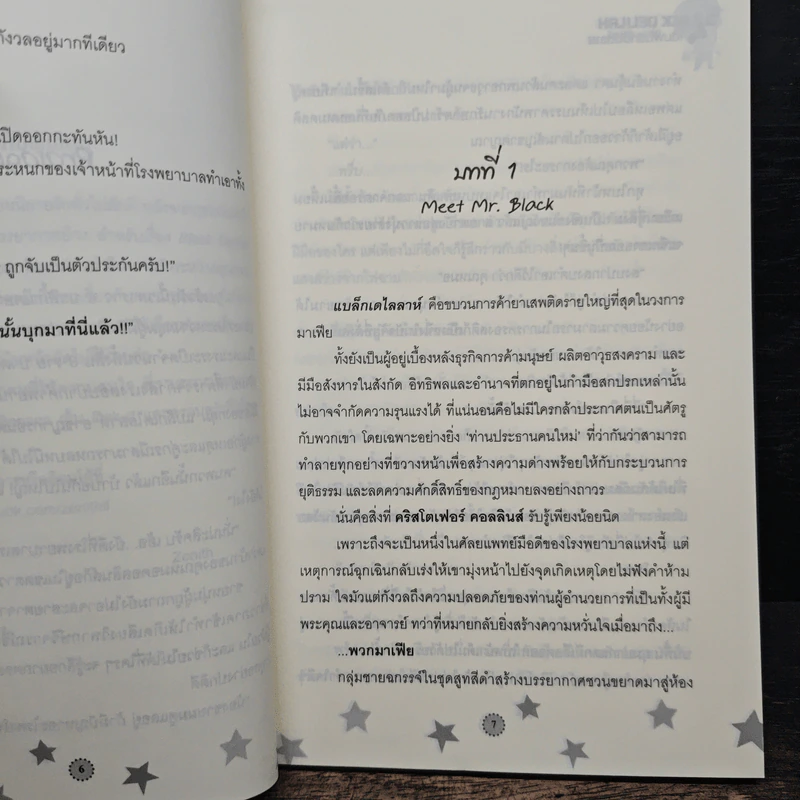 กังวลอยู่มากทีเดียว
เปิดออกกะทันหัน!
ระหนกของเจ้าหน้าที่โรงพยาบาลทำเอาทั้ง
ถูกจับเป็นตัวประกันครับ!"
นั้นบุกมาที่นี่แล้ว!!"
6
บทที่ 1
Meet Mr. Black
แบล็กเดไลลาห์ คือขบวนการค้ายาเสพติดรายใหญ่ที่สุดในวงการ
มาเฟีย
ทั้งยังเป็นผู้อยู่เบื้องหลังธุรกิจการค้ามนุษย์ ผลิตอาวุธสงคราม และ
มีมือสังหารในสังกัด อิทธิพลและอำนาจที่ตกอยู่ในกำมือสกปรกเหล่านั้น
ไม่อาจจำกัดความรุนแรงได้ ที่แน่นอนคือไม่มีใครกล้าประกาศตนเป็นศัตรู
กับพวกเขา โดยเฉพาะอย่างยิ่ง 'ท่านประธานคนใหม่' ที่ว่ากันว่าสามารถ
ทำลายทุกอย่างที่ขวางหน้าเพื่อสร้างความด่างพร้อยให้กับกระบวนการ
ยุติธรรม และลดความศักดิ์สิทธิ์ของกฎหมายลงอย่างถาวร
นั่นคือสิ่งที่ คริสโตเฟอร์ คอลลินส์ รับรู้เพียงน้อยนิด
เพราะถึงจะเป็นหนึ่งในศัลยแพทย์มือดีของโรงพยาบาลแห่งนี้ แต่
เหตุการณ์ฉุกเฉินกลับเร่งให้เขามุ่งหน้าไปยังจุดเกิดเหตุโดยไม่ฟังคำห้าม
ปราม ใจมัวแต่กังวลถึงความปลอดภัยของท่านผู้อำนวยการที่เป็นทั้งผู้มี
พระคุณและอาจารย์ ทว่าที่หมายกลับยิ่งสร้างความหวั่นใจเมื่อมาถึง...
...พวกมาเฟีย
กลุ่มชายฉกรรจ์ในชุดสูทสีดำสร้างบรรยากาศชวนขยาดมาสู่ห้อง
7